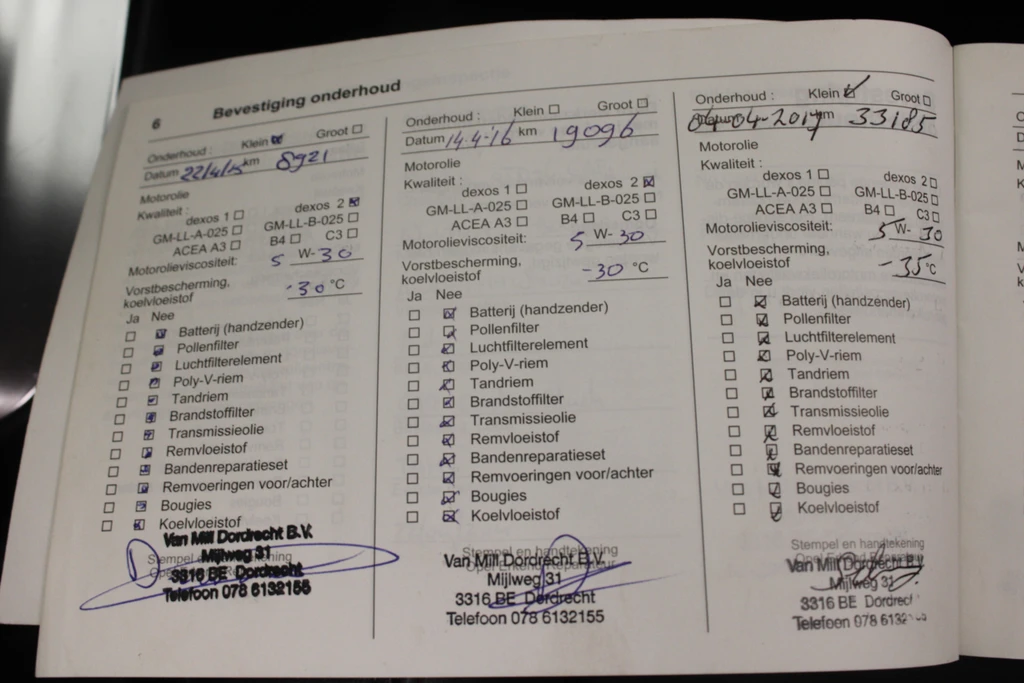 6 Bevestiging onderhoud
Onderhoud : Klein Groot
Datum 22/4/15 km 8921
Motorolie
Kwaliteit :
dexos 1 dexos 2
GM-LL-A-025 GM-LL-B-025
ACEA A3 B4 C3
Motorolieviscositeit: 5 W-30
Vorstbescherming,
koelvloeistof -30 °C
Ja Nee
Batterij (handzender)
Pollenfilter
Luchtfilterelement
Poly-V-riem
Tandriem
Brandstoffilter
Transmissieolie
Remvloeistof
Bandenreparatieset
Remvoeringen voor/achter
Bougies
Koelvloeistof
Van Mill Dordrecht B.V.
Stempel en handtekening
Mijlweg 31
3316 BE Dordrecht
Telefoon 078 6132155
Onderhoud : Klein Groot
Datum 14-4-16 km 19096
Motorolie
Kwaliteit :
dexos 1 dexos 2
GM-LL-A-025 GM-LL-B-025
ACEA A3 B4 C3
Motorolieviscositeit: 5 W-30
Vorstbescherming,
koelvloeistof -30 °C
Ja Nee
Batterij (handzender)
Pollenfilter
Luchtfilterelement
Poly-V-riem
Tandriem
Brandstoffilter
Transmissieolie
Remvloeistof
Bandenreparatieset
Remvoeringen voor/achter
Bougies
Koelvloeistof
Stempel en handtekening
Van Mill Dordrecht B.V.
Mijlweg 31
3316 BE Dordrecht
Telefoon 078 6132155
Onderhoud : Klein Groot
Datum 04-04-2017 km 33185
Motorolie
Kwaliteit :
dexos 1 dexos 2
GM-LL-A-025 GM-LL-B-025
ACEA A3 B4 C3
Motorolieviscositeit: 5 W- 30
Vorstbescherming,
koelvloeistof -35 °C
Ja Nee
Batterij (handzender)
Pollenfilter
Luchtfilterelement
Poly-V-riem
Tandriem
Brandstoffilter
Transmissieolie
Remvloeistof
Bandenreparatieset
Remvoeringen voor/achter
Bougies
Koelvloeistof
Stempel en handtekening
Van Mill Dordrecht B.V.
Mijlweg 31
3316 BE Dordrecht
Telefoon 078 6132